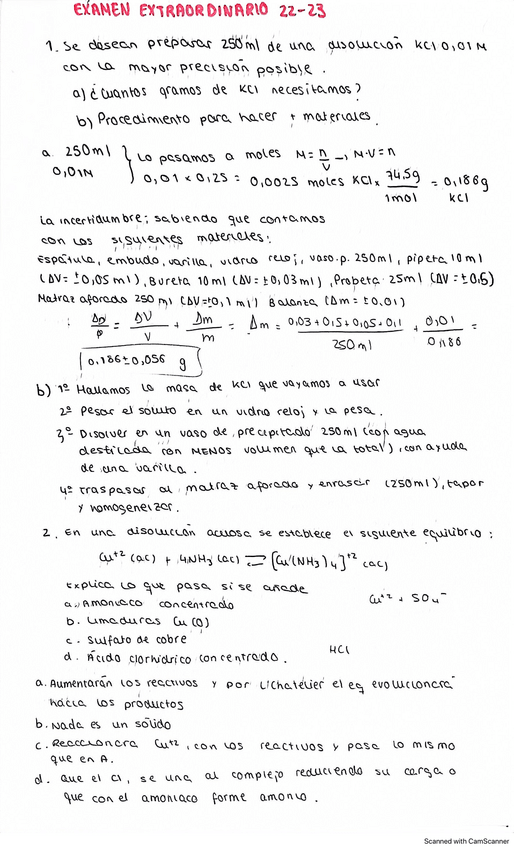 EXAMEN EXTRAORDINARIO 22-23
1. Se desean preparar 250 ml de una disolución KCl 0,01M
con la mayor precisión posible.
a) ¿Cuantos gramos de KCl necesitamos?
b) Procedimiento para hacer + materiales.
a. 250ml } Lo pasamos a moles M = n/V → M·V = n
0,01M 0,01 × 0,25 = 0,0025 moles KCl × 74,5g/1mol = 0,186g KCl
La incertidumbre; sabiendo que contamos
con los siguientes materiales:
Espátula, embudo, varilla, vidrio reloj, vaso.p. 250ml, pipeta 10ml
(ΔV = ±0,05 ml), Bureta 10ml (ΔV = ±0,03 ml), Probeta 25ml (ΔV = ±0,5)
Matraz aforado 250 ml (ΔV = ±0,1 ml) Balanza (Δm = ±0,01)
: Δρ/ρ = ΔV/V + Δm/m = Δm = 0,03 + 0,5 + 0,05 + 0,1/250 ml + 0,01/0,186 =
0,186 ± 0,056 g
b) 1º Hallamos la masa de KCl que vayamos a usar
2º Pesar el soluto en un vidrio reloj y la pesa.
3º Disolver en un vaso de precipitado 250ml (con agua
destilada con MENOS volumen que la total), con ayuda
de una varilla.
4º traspasar al matraz aforado y enrasar (250ml), tapar
y homogeneizar.
2. En una disolución acuosa se establece el siguiente equilibrio:
Cu+2 (ac) + 4NH3 (ac) ⇌ [Cu(NH3)4]+2 (ac)
explica lo que pasa si se añade
a. Amoniaco concentrado
Cu+2 + SO4-
b. Limaduras Cu(0)
c. Sulfato de cobre
d. Ácido clorhídrico concentrado.
HCl
a. Aumentarán los reactivos y por Lichatelier el eq evolucionará
hacia los productos
b. Nada es un sólido
c. Reaccionara Cu+2, con los reactivos y pasa lo mismo
que en A.
d. Que el Cl, se una al complejo reduciendo su carga o
que con el amoniaco forme amonio.
Scanned with CamScanner